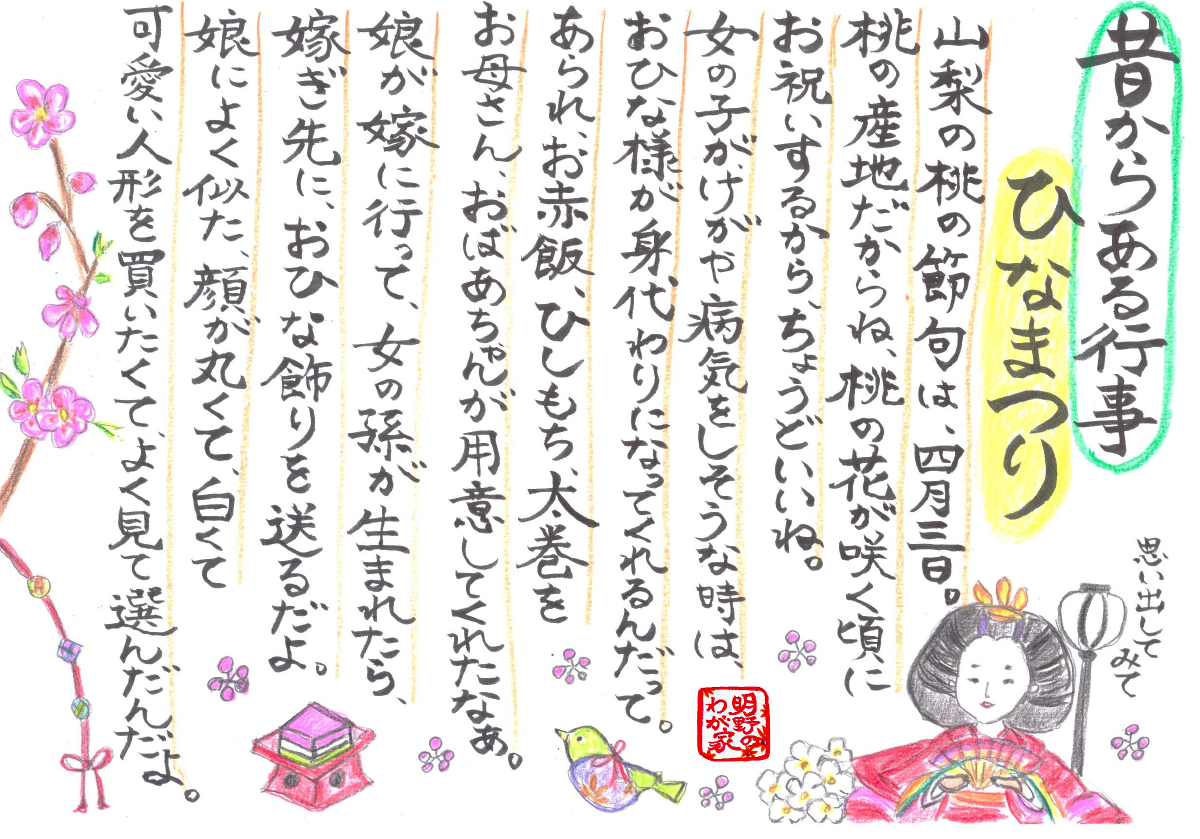 昔からある行事
ひなまつり
思い出して
みて
山梨の桃の節句は、四月三日。
桃の産地だからね、桃の花が咲く頃に
お祝いするから、ちょうどいいね。
女の子が、けがや病気をしそうな時は、
おひな様が身代わりになってくれるんだって。
あられ、お赤飯、ひしもち、太巻を
お母さん、おばあちゃんが用意してくれたなぁ。
娘が嫁に行って、女の孫が生まれたら、
嫁ぎ先に、おひな飾りを送るだよ。
娘によく似た、顔が丸くて、白くて
可愛い人形を買いたくて、よく見て選んだんだよ。
明野の
わが家